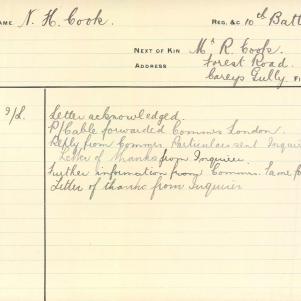 NAME N. H. Cook. REG. &C 10th Batt
NEXT OF KIN Mr R. Cook.
ADDRESS Forest Road.
Careys Gully. F
9/L. Letter acknowledged.
P/Cable forwarded Commrs London.
Reply from Commrs. Particulars sent Inquir
Letter of thanks from Inquirer.
Further information from Commrs. Same f
Letter of thanks from Inquirer